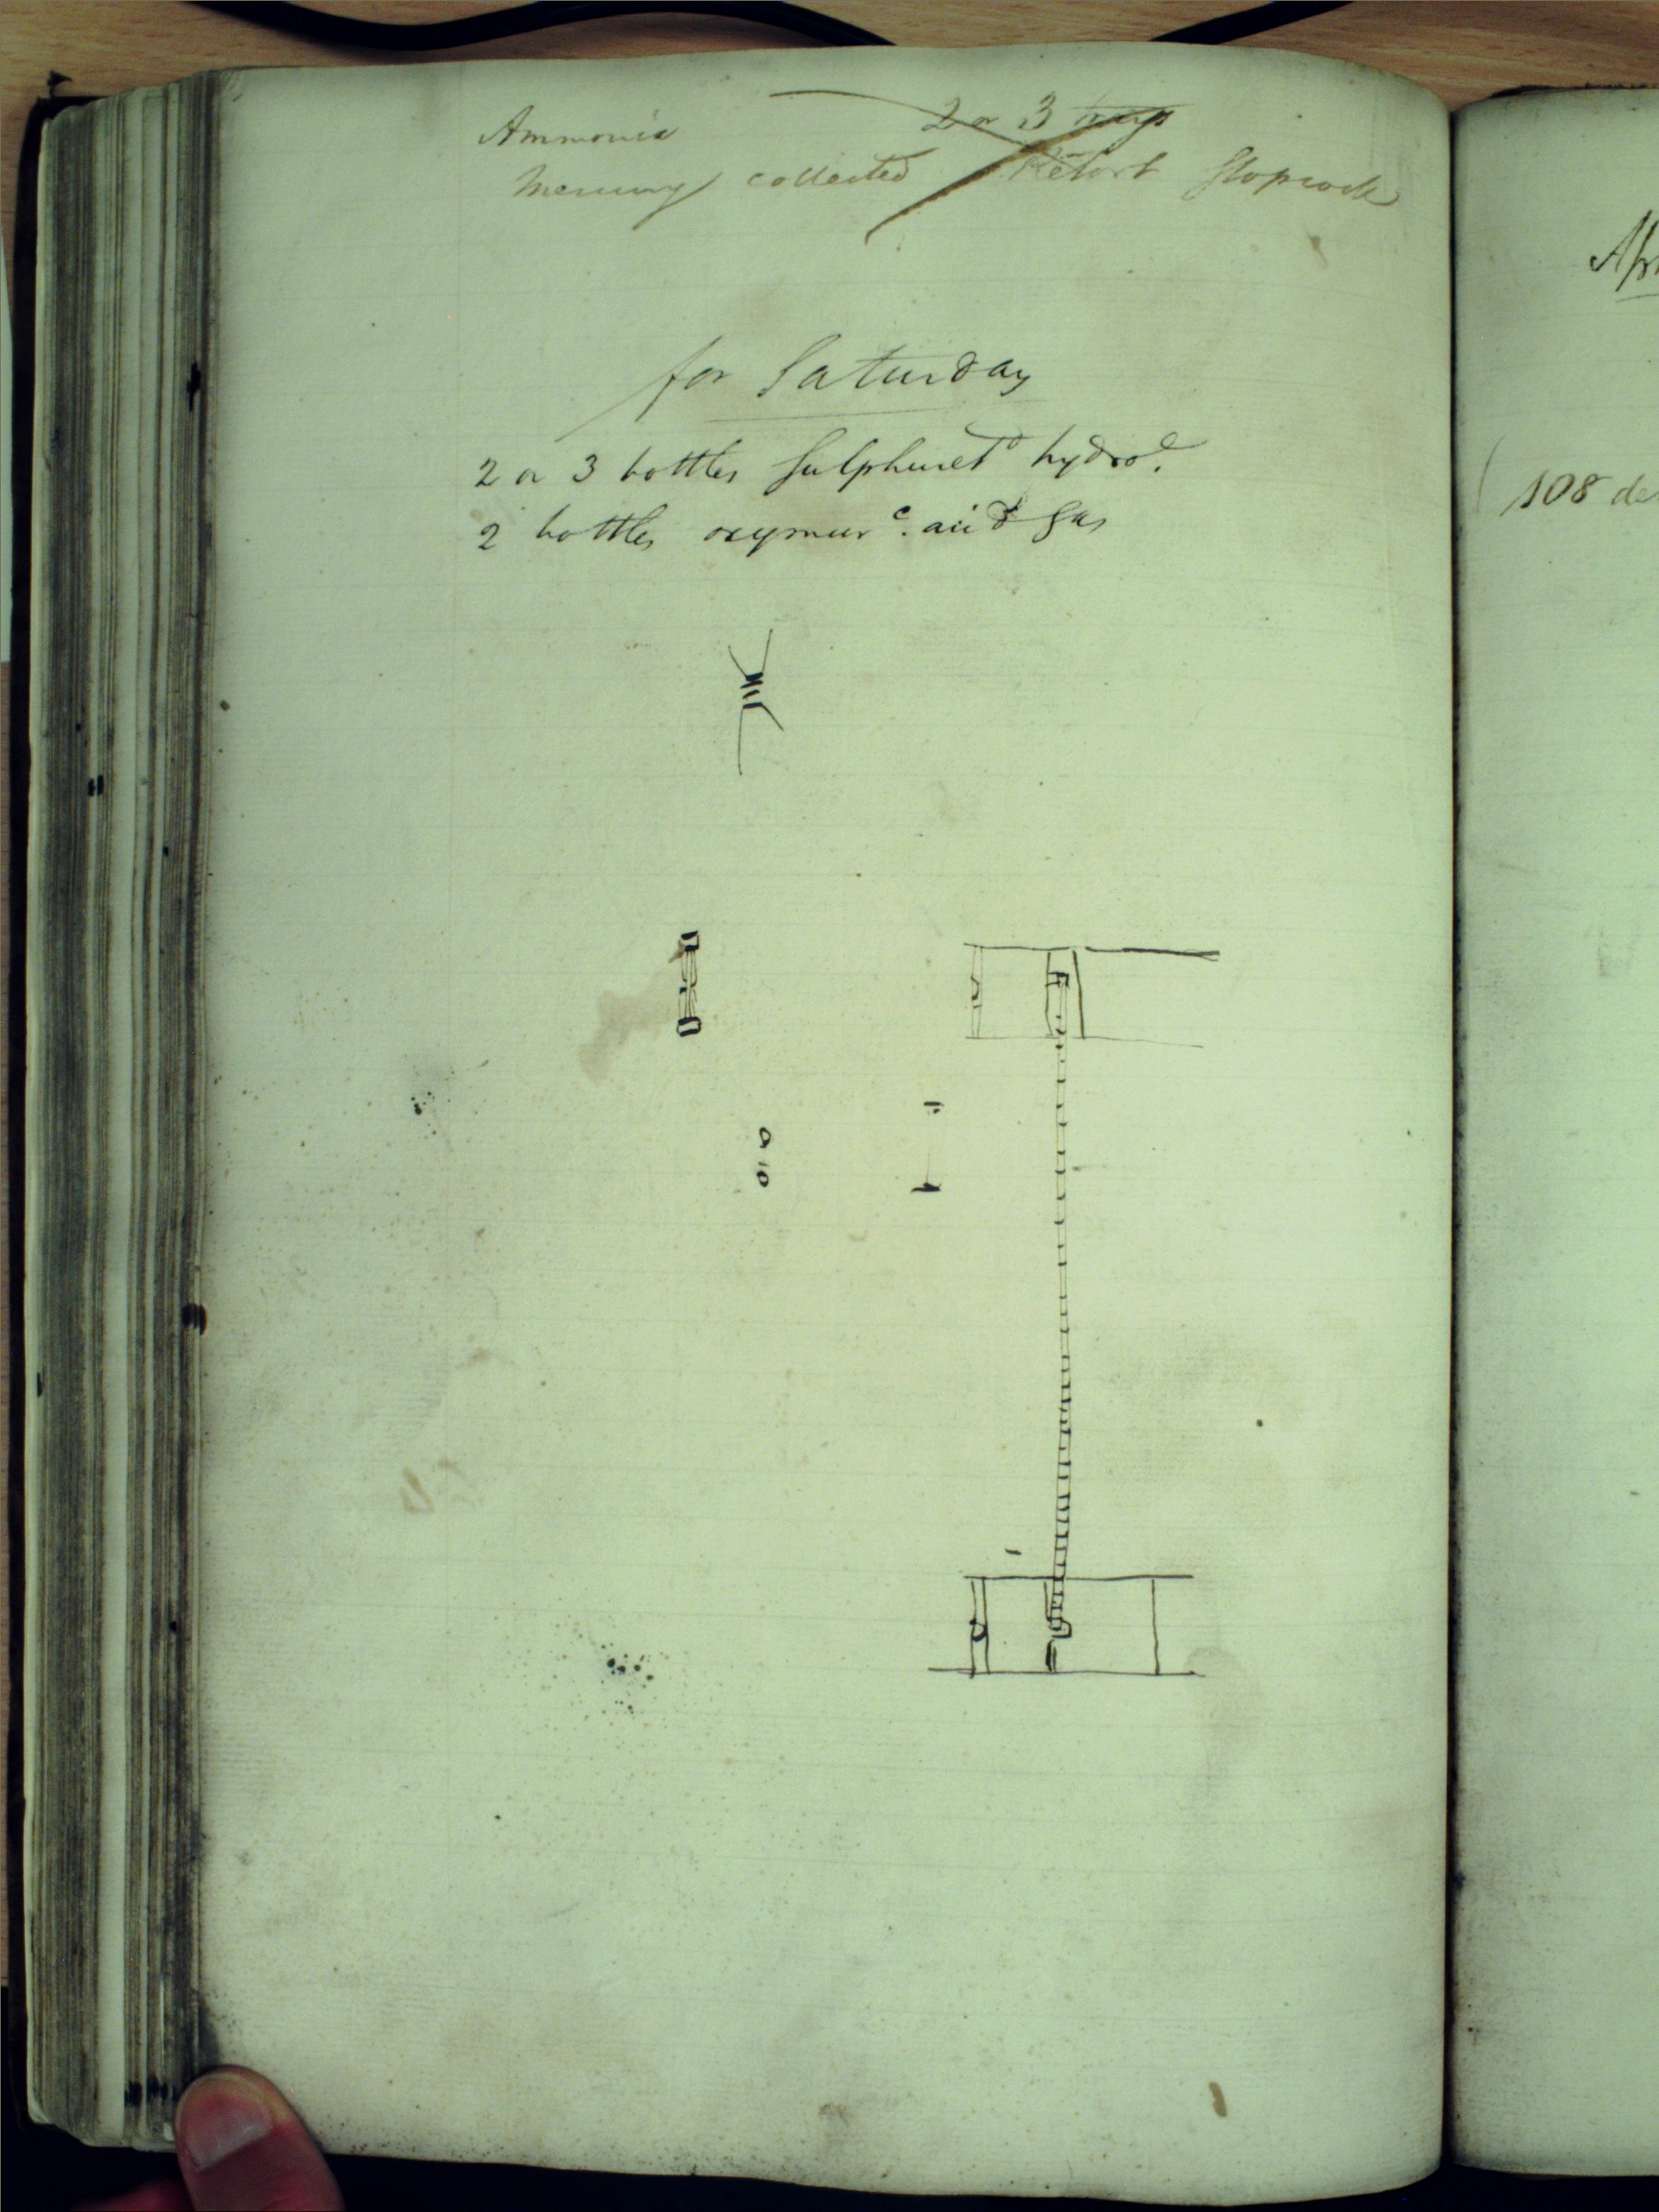 Ammonia 2 or 3
Mercury collected Retort Stopcock
for Saturday
2 or 3 bottles Sulphuret^d hydro^e.
2 bottles oxymur^c. acid gas
108 de